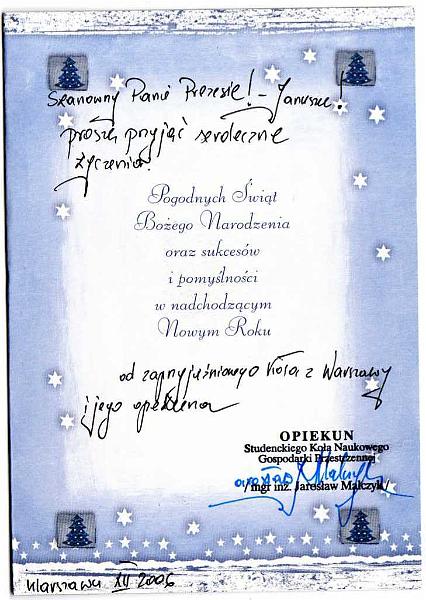 Szanowny Panie Prezesie! – Januszu!
proszę przyjąć serdeczne
życzenia!
Pogodnych Świąt
Bożego Narodzenia
oraz sukcesów
i pomyślności
w nadchodzącym
Nowym Roku
od zaprzyjaźnionego Koła z Warszawy
i jego opiekuna
OPIEKUN
Studenckiego Koła Naukowego
Gospodarki Przestrzennej
/ mgr inż. Jarosław Malczyk/
Warszawa XII 2006